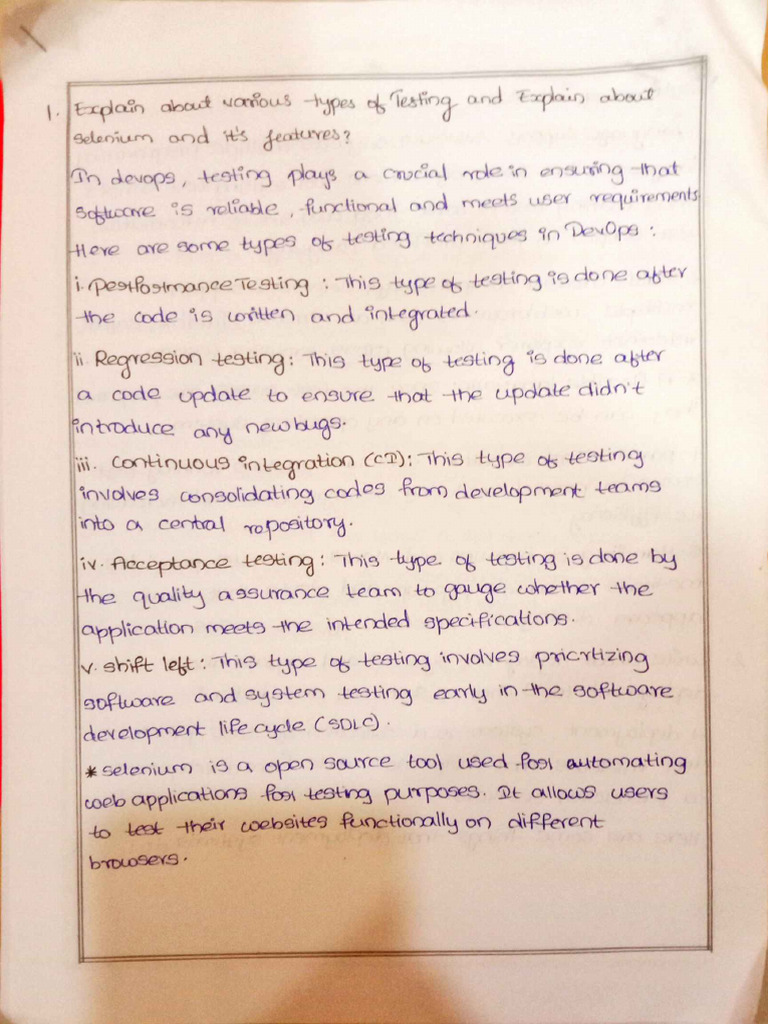 1. Explain about various types of Testing and Explain about
selenium and it's features?
In devops, testing plays a crucial role in ensuring that
software is reliable, functional and meets user requirements
Here are some types of testing techniques in DevOps :
i. Performance Testing : This type of testing is done after
the code is written and integrated.
ii. Regression testing : This type of testing is done after
a code update to ensure that the update didn't
introduce any new bugs.
iii. Continuous integration (CI): This type of testing
involves consolidating codes from development teams
into a central repository.
iv. Acceptance testing : This type of testing is done by
the quality assurance team to gauge whether the
application meets the intended specifications.
v. shift left : This type of testing involves priortizing
software and system testing early in the software
development life cycle (SDLC).
* selenium is a open source tool used for automating
web applications for testing purposes. It allows users
to test their websites functionally on different
browsers.